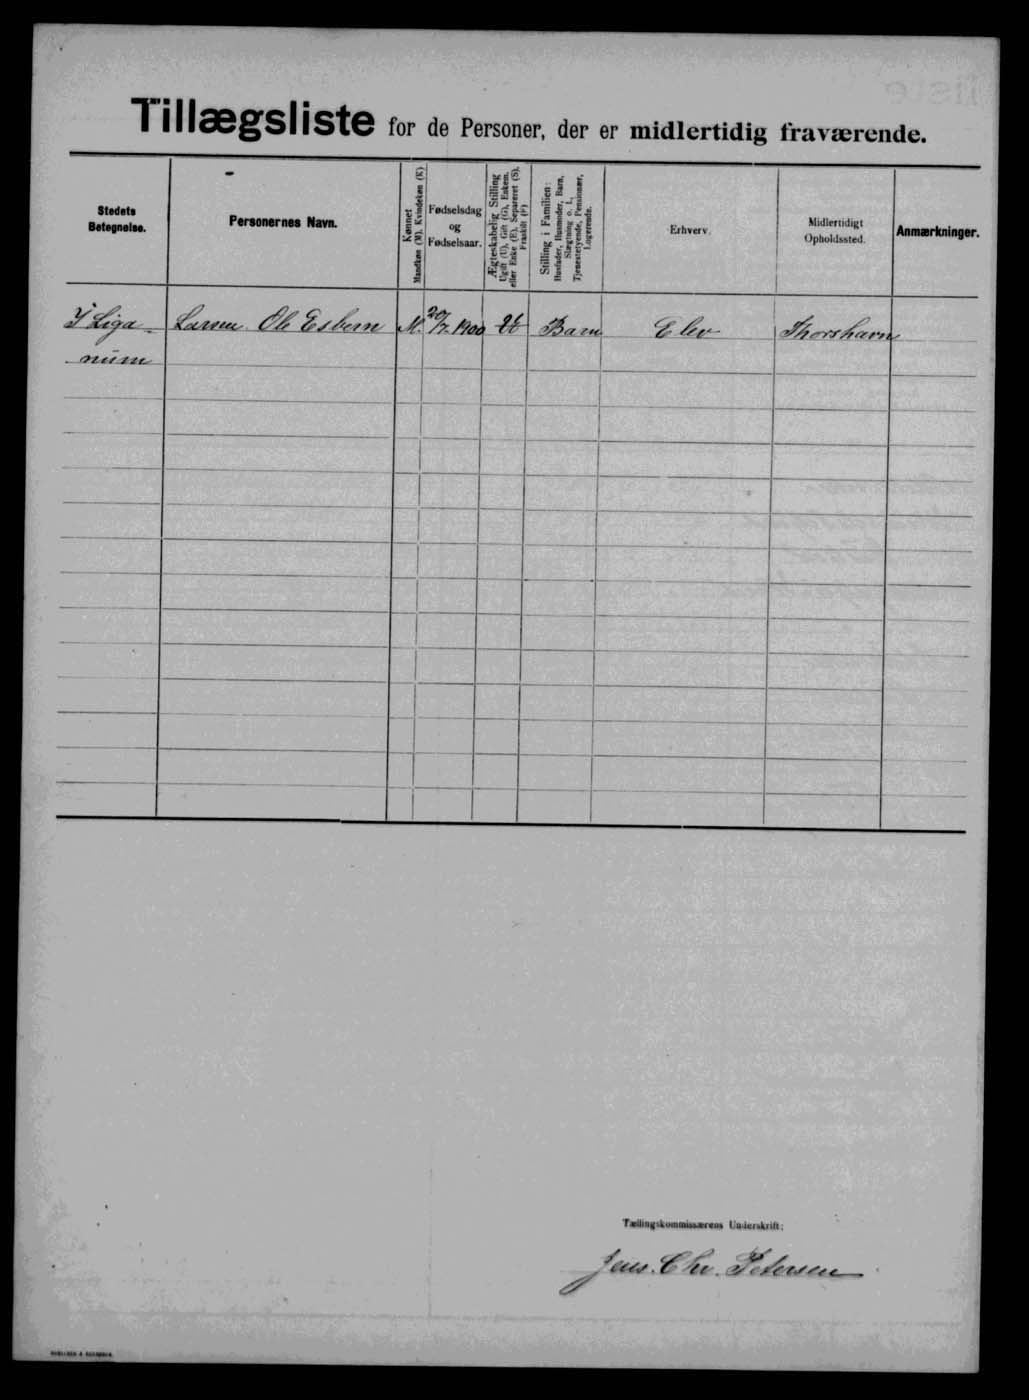 Tillægsliste for de Personer, der er midlertidig fraværende.
Stedets Betegnelse.
Personernes Navn.
Kønnet
Mandkøn (M). Kvindekøn (K)
Fødselsdag
og
Fødselsaar.
Ægteskabelig Stilling
Ugift (U), Gift (G), Enkem.
eller Enke (E), Separeret (S).
Fraskilt (F)
Stilling i Familien:
Husfader, Husmoder, Barn,
Slægtning o. l.,
Tjenestetyende, Pensionær,
Logerende.
Erhverv.
Midlertidigt
Opholdssted.
Anmærkninger.
I Liga- Larsen Ole Esbern M. 20/7 1900 U Barn Elev Thorshavn
num
Tællingskommissærens Underskrift:
Jens. Chr. Petersen